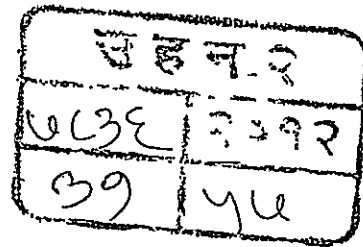 उहन-२
७८३६ २०१२
३१ ५७